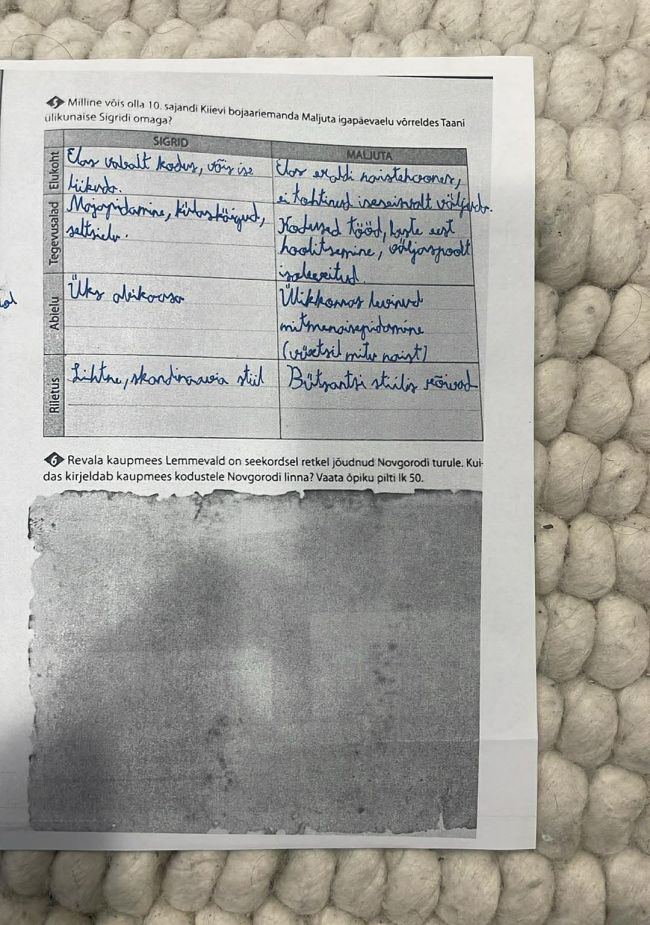 5 Milline võis olla 10. sajandi Kiievi bojaariemanda Maljuta igapäevaelu võrreldes Taani
ülikunaise Sigridi omaga?
SIGRID
MALJUTA
Elukoht
Elas vabalt kodus, võis ise
liikuda.
Elas eraldi naistehoones,
ei tohtinud iseseisvalt väljuda.
Tegevusalad
Majapidamine, külaskäigud,
seltsielu.
Kodused tööd, laste eest
hoolitsemine, väljaspoolt
isoleeritud.
Abielu
Üks abikaasa
Ülikkonnas levinud
mitmenaisepidamine
(vürstil mitu naist)
Riietus
Lihtne, skandinaavia stiil
Bütsantsi stiilis rõivad
6 Revala kaupmees Lemmevald on seekordsel retkel jõudnud Novgorodi turule. Kui-
das kirjeldab kaupmees kodustele Novgorodi linna? Vaata õpiku pilti lk 50.